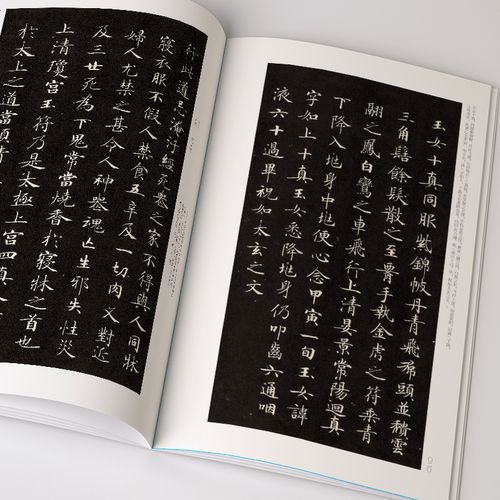 玉女十真同服紫錦帔丹青飛帬頭並穨雲
三角髻餘髮散之至要手執金虎之符乘青
翮之鳳白鸞之車飛行上清晏景常陽迴真
下降入地身中地便心念甲寅一旬玉女諱
字如上十真玉女悉降地身仍叩齒六通咽
液六十過畢祝如太玄之文
行此道忌淹汙經死喪之家不得與人同牀
寢衣服不假人禁食五辛及一切肉又對近
婦人尤禁之甚令人神喪魂亡生邪失性災
及三世死為下鬼常當燒香於寢牀之首也
上清瓊宮玉符乃是太極上宮四真人
於太上之道當須精